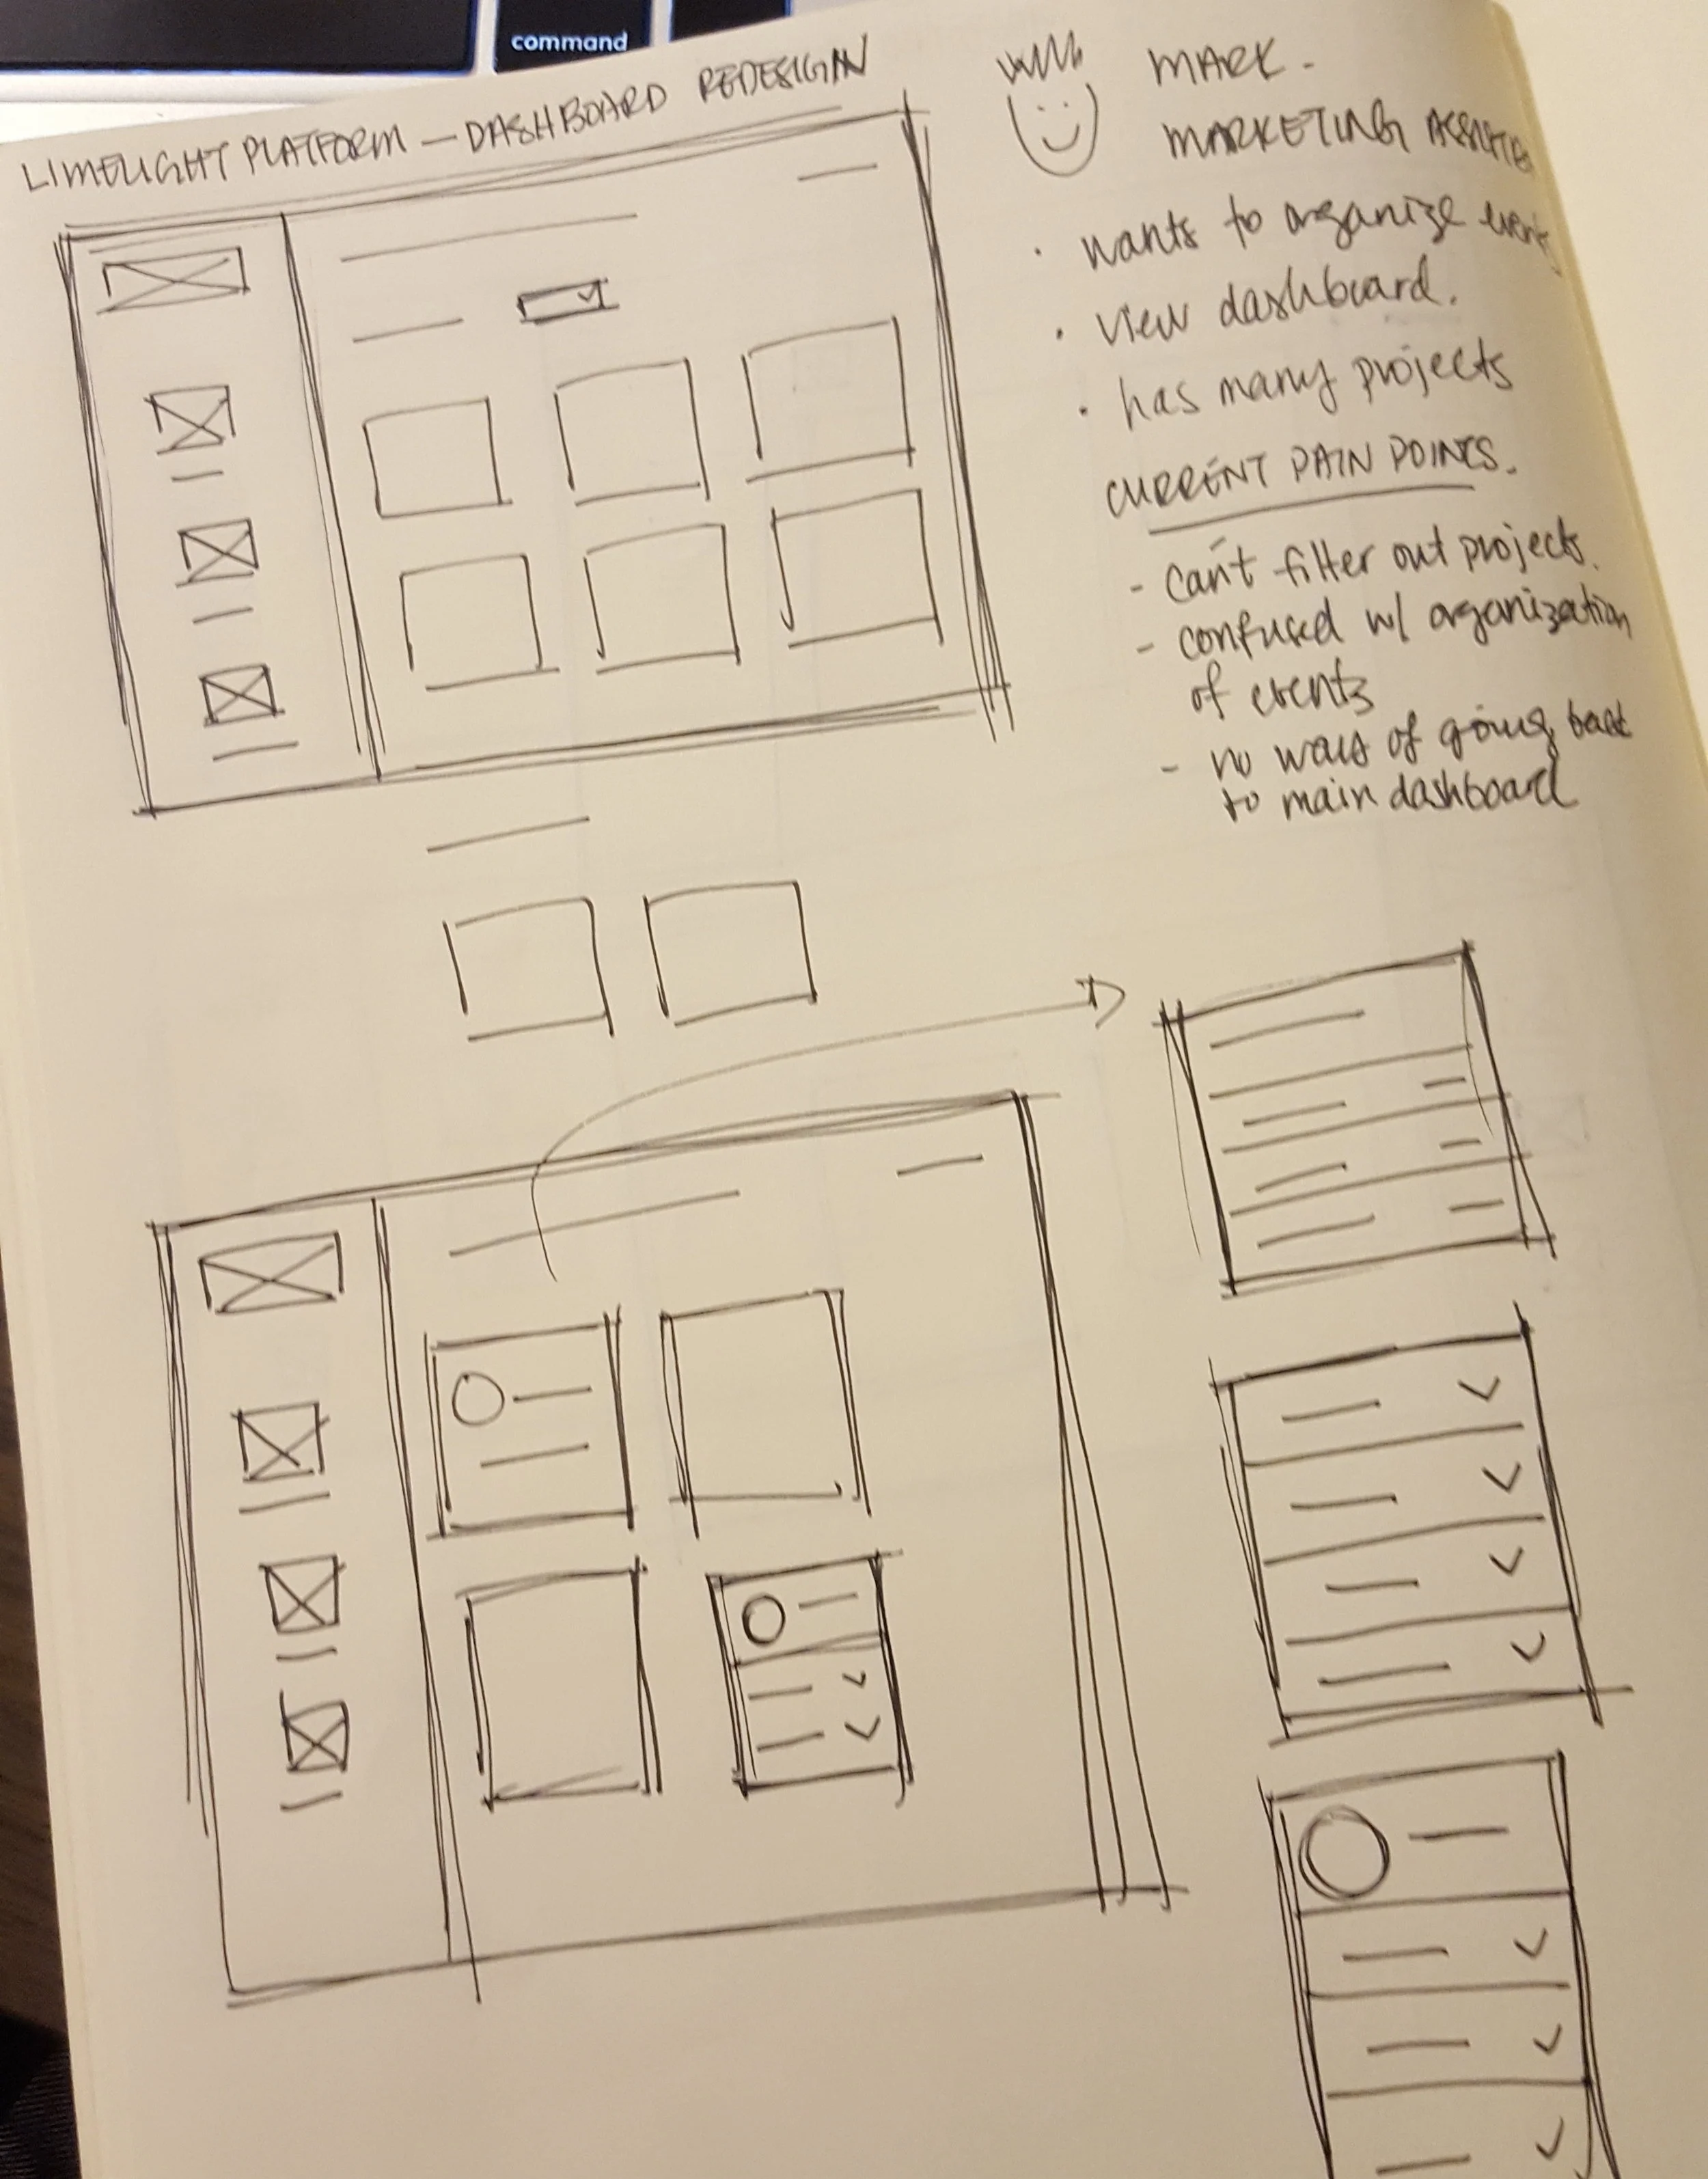 command
LIMELIGHT PLATFORM — DASHBOARD REDESIGN
MARK.
MARKETING
• wants to organize events
• view dashboard.
• has many projects
CURRENT PAIN POINTS.
- can't filter out projects.
- confused w/ organization
of events
- no ways of going back
to main dashboard